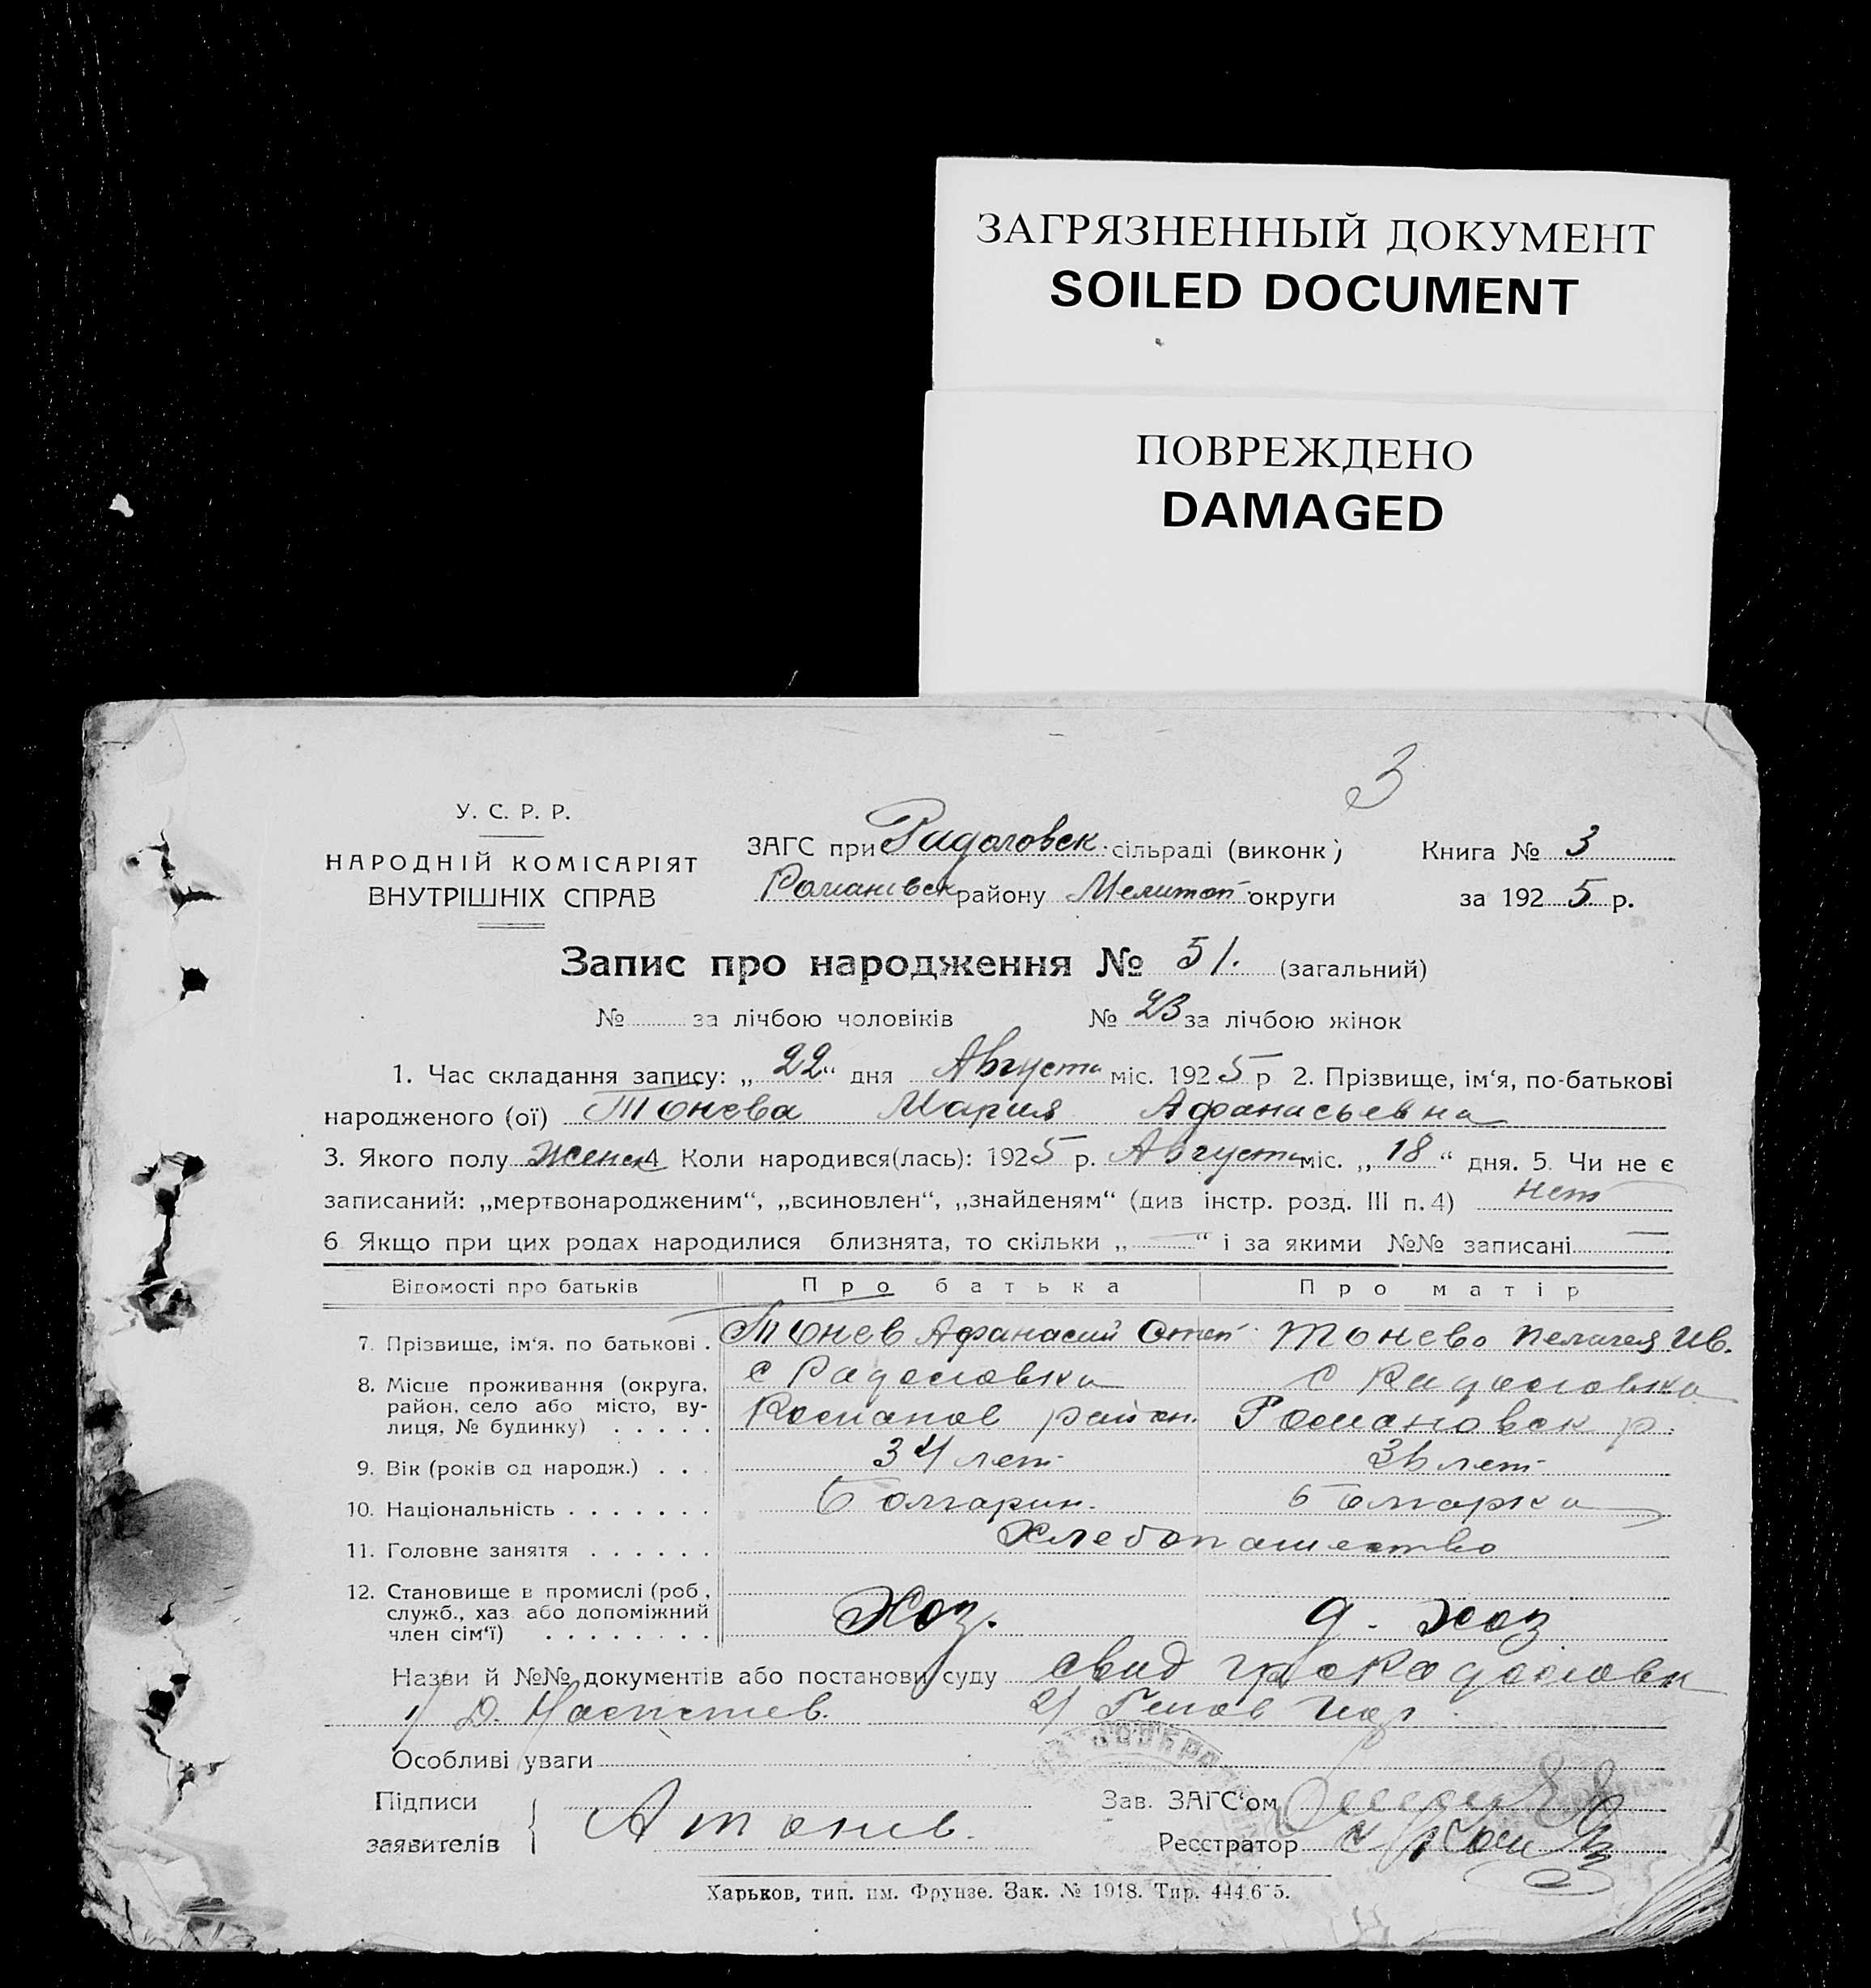 ЗАГРЯЗНЕННЫЙ ДОКУМЕНТ
SOILED DOCUMENT
ПОВРЕЖДЕНО
DAMAGED
3
У. С. Р. Р.
НАРОДНІЙ КОМІСАРІЯТ
ВНУТРІШНІХ СПРАВ
ЗАГС при Радоловск. сільраді (виконк)
Романовск району Мелитоп округи
Книга № 3
за 1925 р.
Запис про народження № 51. (загальний)
№ за лічбою чоловіків № 23 за лічбою жінок
1. Час складання запису: „22“ дня Августа міс. 1925 р 2. Прізвище, ім‘я, по-батькові
народженого (ої) Тонева Мария Афанасьевна
3. Якого полу женск 4 Коли народився(лась): 1925 р. Августа міс. „18“ дня. 5. Чи не є
записаний: „мертвонародженим“, „всиновлен“, „знайденям“ (див інстр. розд. III п. 4) нет
6 Якщо при цих родах народилися близнята, то скільки „—“ і за якими №№ записані —
Відомості про батьків Про батька Про матір
7. Прізвище, ім‘я. по батькові . Тонев Афанасий Степ Тонева Пелагея Ив.
8. Місце проживання (округа, с Радоловка с Радоловка
район, село або місто, ву-
лиця, № будинку) . . . . . Романов район. Романовск р.
9. Вік (років од народж.) . . . 34 лет 36 лет
10. Національність . . . . . . . Болгарин. Болгарка
11. Головне заняття . . . . . . Хлебопашество
12. Становище в промислі (роб.,
служб., хаз. або допоміжний Хоз. д. хоз
член сім‘ї) . . . . . . . .
Назви й №№ документів або постанови суду свид
1/ Д. 2/ Генов
Особливі уваги
Підписи
заявителів А Тонев.
Зав. ЗАГС‘ом
Реєстратор
Харьков, тип. им. Фрунзе. Зак. № 1918. Тир. 444.675.